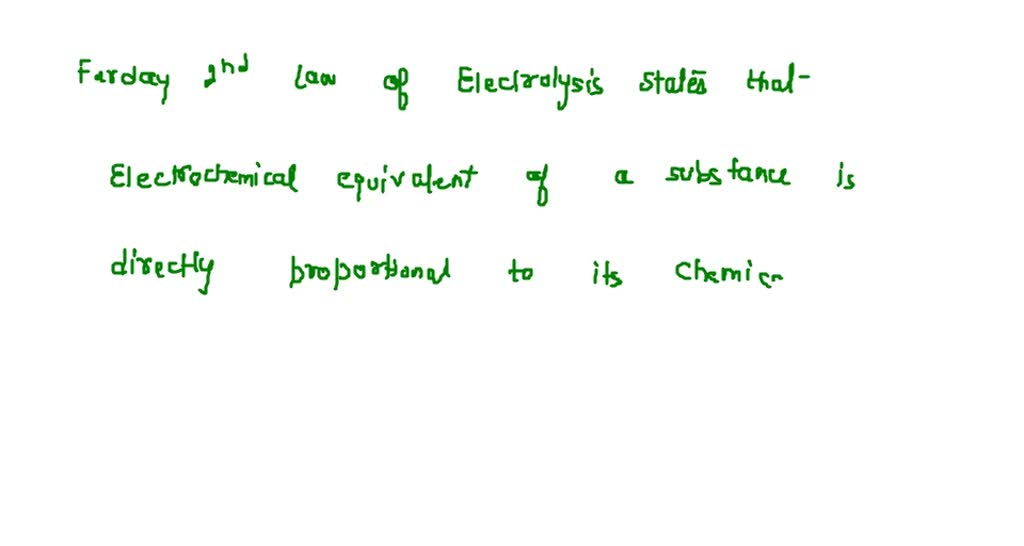 Farday 2nd Law of Electrolysis states that
Electrochemical equivalent of a substance is
directly proportional to its Chemic